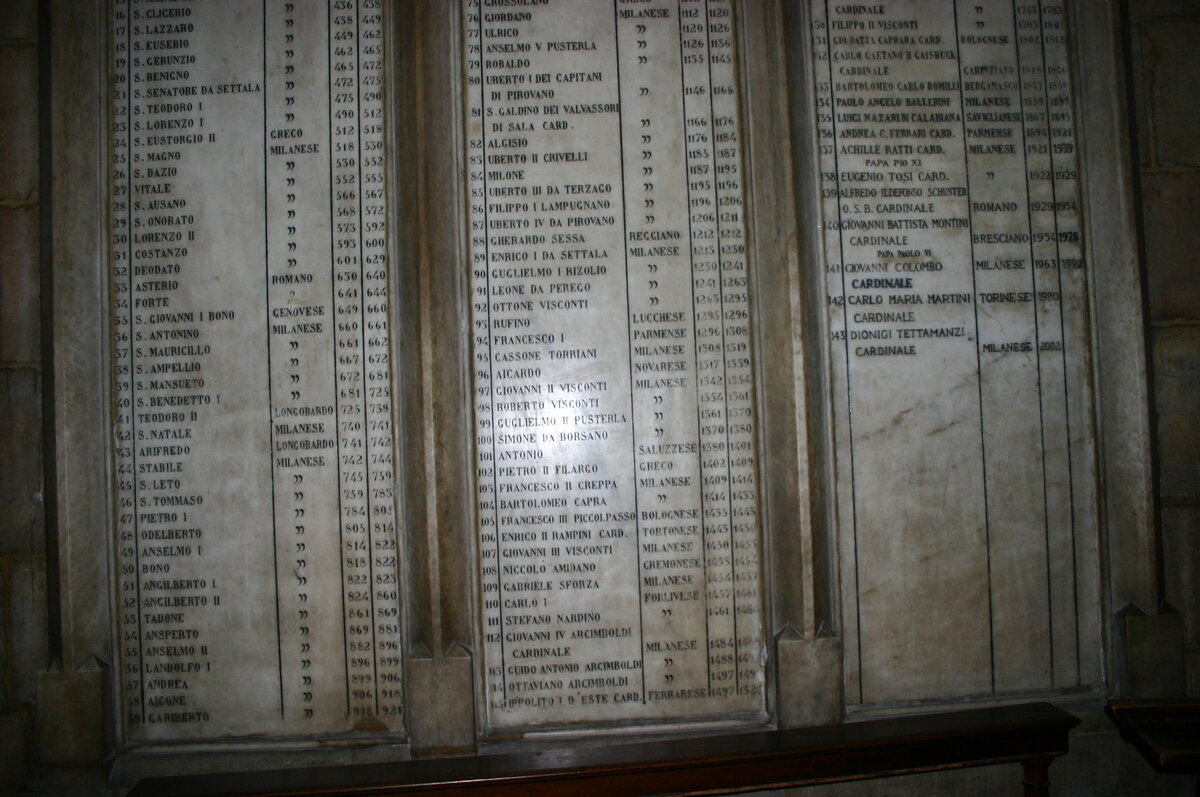 16 S. CLICERIO " 436 438
17 S. LAZZARO " 438 449
18 S. EUSEBIO " 449 462
19 S. GERUNZIO " 462 465
20 S. BENIGNO " 465 472
21 S. SENATORE DA SETTALA " 472 475
22 S. TEODORO I " 475 490
23 S. LORENZO I " 490 512
24 S. EUSTORGIO II GRECO 512 518
25 S. MAGNO MILANESE 518 530
26 S. DAZIO " 530 552
27 VITALE " 552 555
28 S. AUSANO " 566 567
29 S. ONORATO " 568 572
30 LORENZO II " 573 592
31 COSTANZO " 593 600
32 DEODATO " 601 629
33 ASTERIO ROMANO 630 640
34 FORTE " 641 644
35 S. GIOVANNI I BONO GENOVESE 649 660
36 S. ANTONINO MILANESE 660 661
37 S. MAURICILLO " 661 662
38 S. AMPELLIO " 667 672
39 S. MANSUETO " 672 681
40 S. BENEDETTO I " 681 725
41 TEODORO II LONGOBARDO 725 739
42 S. NATALE MILANESE 740 741
43 ARIFREDO LONGOBARDO 741 742
44 STABILE MILANESE 742 744
45 S. LETO " 745 759
46 S. TOMMASO " 759 783
47 PIETRO I " 784 805
48 ODELBERTO " 805 814
49 ANSELMO I " 814 822
50 BONO " 818 822
51 ANGILBERTO I " 822 823
52 ANGILBERTO II " 824 860
53 TADONE " 861 869
54 ANSPERTO " 869 881
55 ANSELMO II " 882 896
56 LANDOLFO I " 896 899
57 ANDREA " 899 906
58 AICONE " 906 918
59 GARIBERTO " 918 921
75 GROSSOLANO
76 GIORDANO MILANESE 1112 1120
77 ULRICO " 1120 1126
78 ANSELMO V PUSTERLA " 1126 1136
79 ROBALDO " 1135 1145
80 UBERTO I DEI CAPITANI
DI PIROVANO " 1146 1166
81 S. GALDINO DEI VALVASSORI
DI SALA CARD. " 1166 1176
82 ALGISIO " 1176 1184
83 UBERTO II CRIVELLI " 1185 1187
84 MILONE " 1187 1195
85 UBERTO III DA TERZAGO " 1195 1196
86 FILIPPO I LAMPUGNANO " 1196 1206
87 UBERTO IV DA PIROVANO " 1206 1211
88 GHERARDO SESSA REGGIANO 1212 1212
89 ENRICO I DA SETTALA MILANESE 1213 1230
90 GUGLIELMO I RIZOLIO " 1230 1241
91 LEONE DA PEREGO " 1241 1263
92 OTTONE VISCONTI " 1263 1295
93 RUFINO LUCCHESE 1295 1296
94 FRANCESCO I PARMENSE 1296 1308
95 CASSONE TORRIANI MILANESE 1308 1319
96 AICARDO NOVARESE 1317 1339
97 GIOVANNI II VISCONTI MILANESE 1342 1354
98 ROBERTO VISCONTI " 1354 1361
99 GUGLIELMO II PUSTERLA " 1361 1370
100 SIMONE DA BORSANO " 1370 1380
101 ANTONIO SALUZZESE 1380 1401
102 PIETRO II FILARGO GRECO 1402 1409
103 FRANCESCO II CREPPA MILANESE 1409 1414
104 BARTOLOMEO CAPRA " 1414 1435
105 FRANCESCO III PICCOLPASSO BOLOGNESE 1435 1443
106 ENRICO II RAMPINI CARD. TORTONESE 1443 1450
107 GIOVANNI III VISCONTI MILANESE 1450 1453
108 NICCOLO AMIDANO CREMONESE 1453 1454
109 GABRIELE SFORZA MILANESE 1454 1457
110 CARLO I FORLIVESE 1457 1461
111 STEFANO NARDINO " 1461 1484
112 GIOVANNI IV ARCIMBOLDI
CARDINALE MILANESE 1484
113 GUIDO ANTONIO ARCIMBOLDI " 1488
114 OTTAVIANO ARCIMBOLDI " 1497
115 IPPOLITO I D'ESTE CARD. FERRARESE 1497
CARDINALE " 1743 1783
130 FILIPPO II VISCONTI " 1783
131 GIO. BATTA CAPRARA CARD. BOLOGNESE 1802 1812
132 CARLO GAETANO II GAISRUCK
CARDINALE 1818 1846
133 BARTOLOMEO CARLO ROMILLI BERGAMASCO 1847 1859
134 PAOLO ANGELO BALLERINI MILANESE 1859 1897
135 LUIGI NAZARI DI CALABIANA SAVIGLIANESE 1867 1893
136 ANDREA C. FERRARI CARD. PARMENSE 1894 1921
137 ACHILLE RATTI CARD. MILANESE 1921 1939
PAPA PIO XI
138 EUGENIO TOSI CARD. " 1922 1929
139 ALFREDO ILDEFONSO SCHUSTER
O.S.B. CARDINALE ROMANO 1929 1954
140 GIOVANNI BATTISTA MONTINI
CARDINALE BRESCIANO 1954 1978
PAPA PAOLO VI
141 GIOVANNI COLOMBO MILANESE 1963 1992
CARDINALE
142 CARLO MARIA MARTINI TORINESE 1980
CARDINALE
143 DIONIGI TETTAMANZI
CARDINALE MILANESE 2002